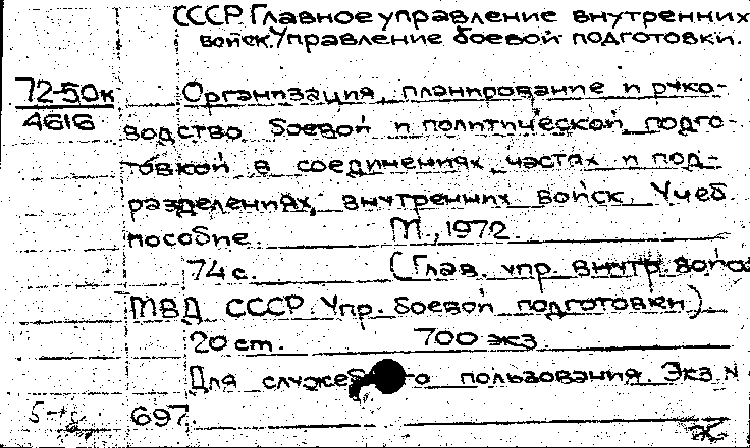 СССР. Главное управление внутренних
войск. Управление боевой подготовки.
72-50к
4616
Организация, планирование и руко-
водство боевой и политической подго-
товкой в соединениях, частях и под-
разделениях внутренних войск. Учеб.
пособие. М., 1972.
74 с. (Глав. упр. внутр. войск
МВД СССР. Упр. боевой подготовки)
20 см. 700 экз.
Для служеб го пользования. Экз. N
697